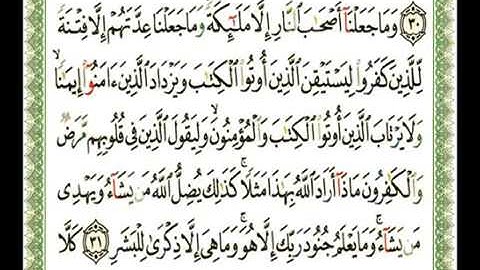 ٣٠ وَمَا جَعَلْنَآ أَصْحَٰبَ ٱلنَّارِ إِلَّا مَلَٰٓئِكَةً ۙ وَمَا جَعَلْنَا عِدَّتَهُمْ إِلَّا فِتْنَةً
لِّلَّذِينَ كَفَرُوا۟ لِيَسْتَيْقِنَ ٱلَّذِينَ أُوتُوا۟ ٱلْكِتَٰبَ وَيَزْدَادَ ٱلَّذِينَ ءَامَنُوٓا۟ إِيمَٰنًا ۙ
وَلَا يَرْتَابَ ٱلَّذِينَ أُوتُوا۟ ٱلْكِتَٰبَ وَٱلْمُؤْمِنُونَ ۙ وَلِيَقُولَ ٱلَّذِينَ فِى قُلُوبِهِم مَّرَضٌ
وَٱلْكَٰفِرُونَ مَاذَآ أَرَادَ ٱللَّهُ بِهَٰذَا مَثَلًا ۚ كَذَٰلِكَ يُضِلُّ ٱللَّهُ مَن يَشَآءُ وَيَهْدِى
مَن يَشَآءُ ۚ وَمَا يَعْلَمُ جُنُودَ رَبِّكَ إِلَّا هُوَ ۚ وَمَا هِىَ إِلَّا ذِكْرَىٰ لِلْبَشَرِ ٣١ كَلَّا